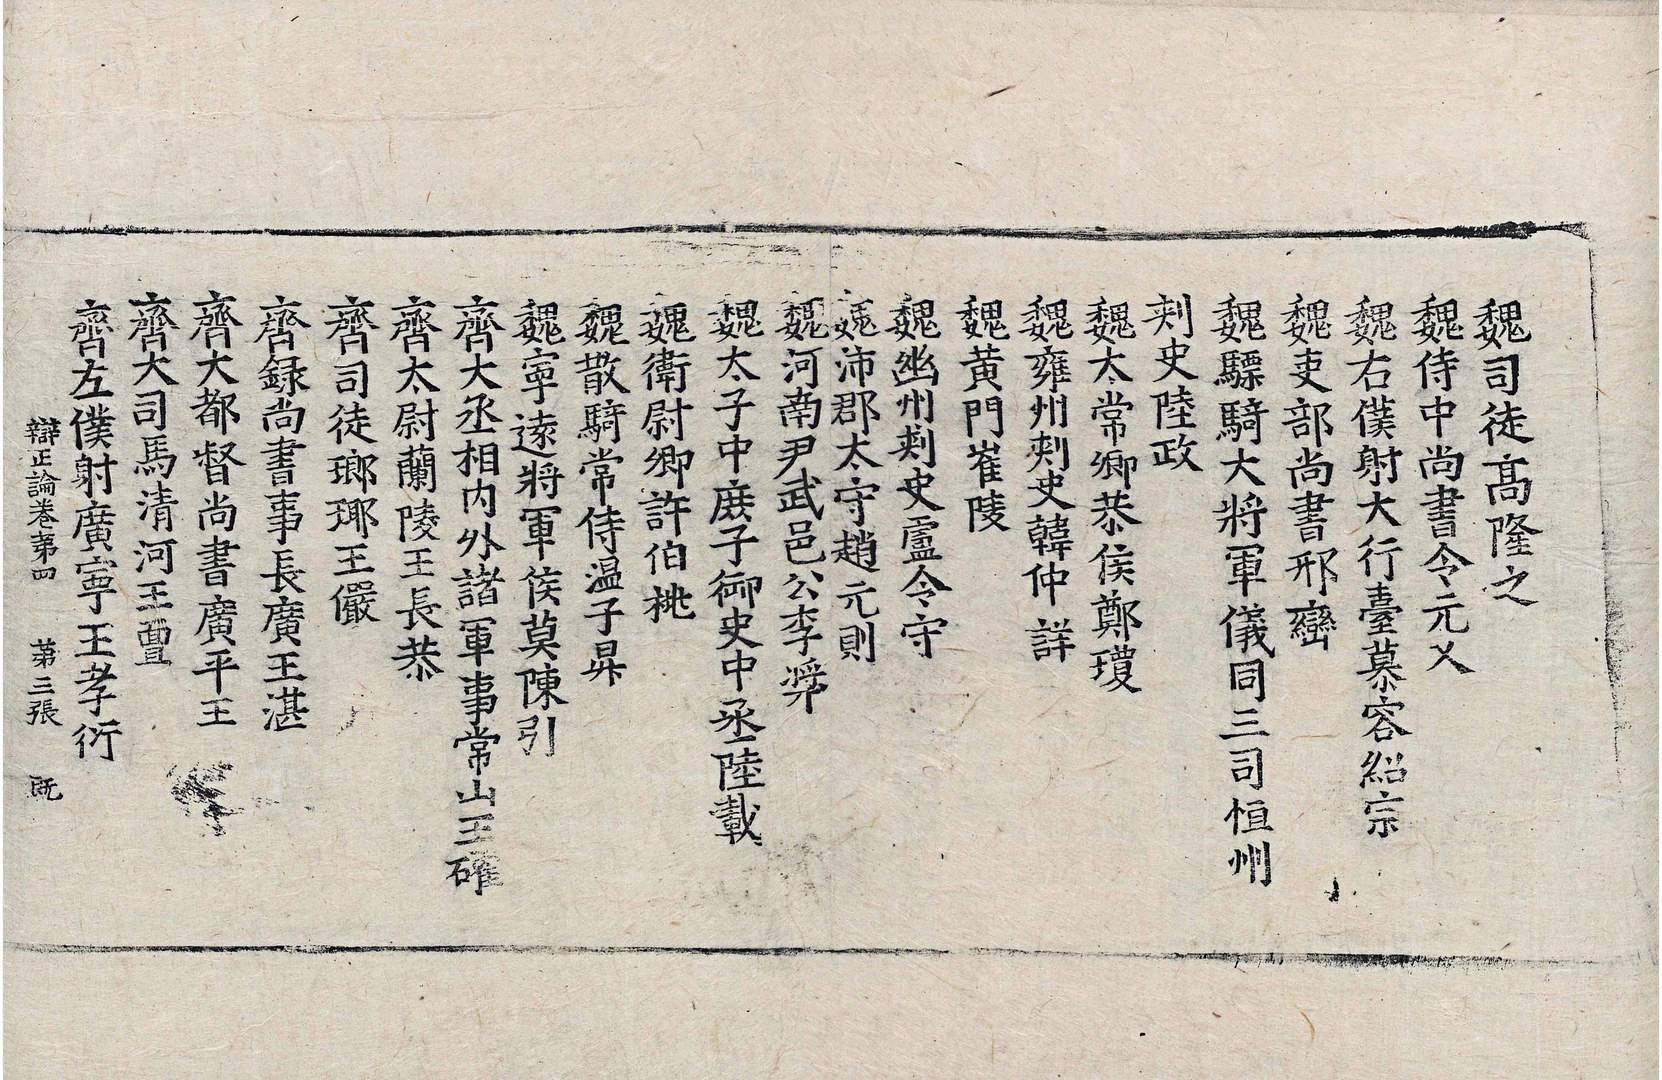 魏司徒髙隆之
魏侍中尚書令元乂
魏右僕射大行臺慕容紹宗
魏吏部尚書邢巒
魏驃騎大將軍儀同三司恒州
刾史陸政
魏太常卿恭侯鄭瓊
魏雍州刾史韓仲詳
魏黄門崔陵
魏幽州刾史盧令守
魏沛郡太守趙元則
魏河南尹武邑公李奬
魏太子中庻子御史中丞陸載
魏衛尉卿許伯桃
魏散騎常侍温子昇
魏寧逺將軍侯莫陳引
齊大丞相内外諸軍事常山王確
齊太尉蘭陵王長恭
齊司徒瑯瑘王儼
齊録尚書事長廣王湛
齊大都督尚書廣平王
齊大司馬清河王亶
齊左僕射廣寧王孝衍
辯正論卷第四 第三張 旣